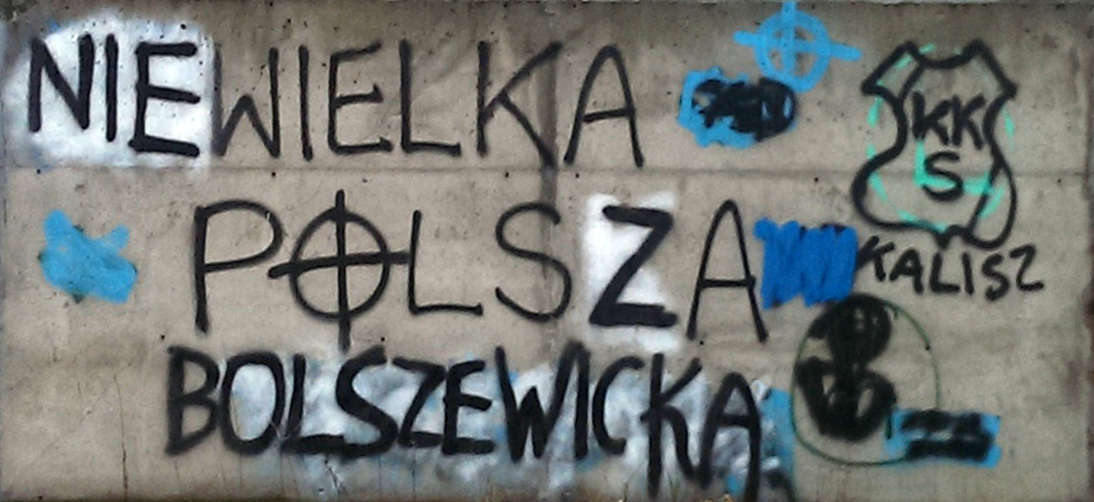 NIEWIELKA
POLSZA
BOLSZEWICKA
KKS
KALISZ